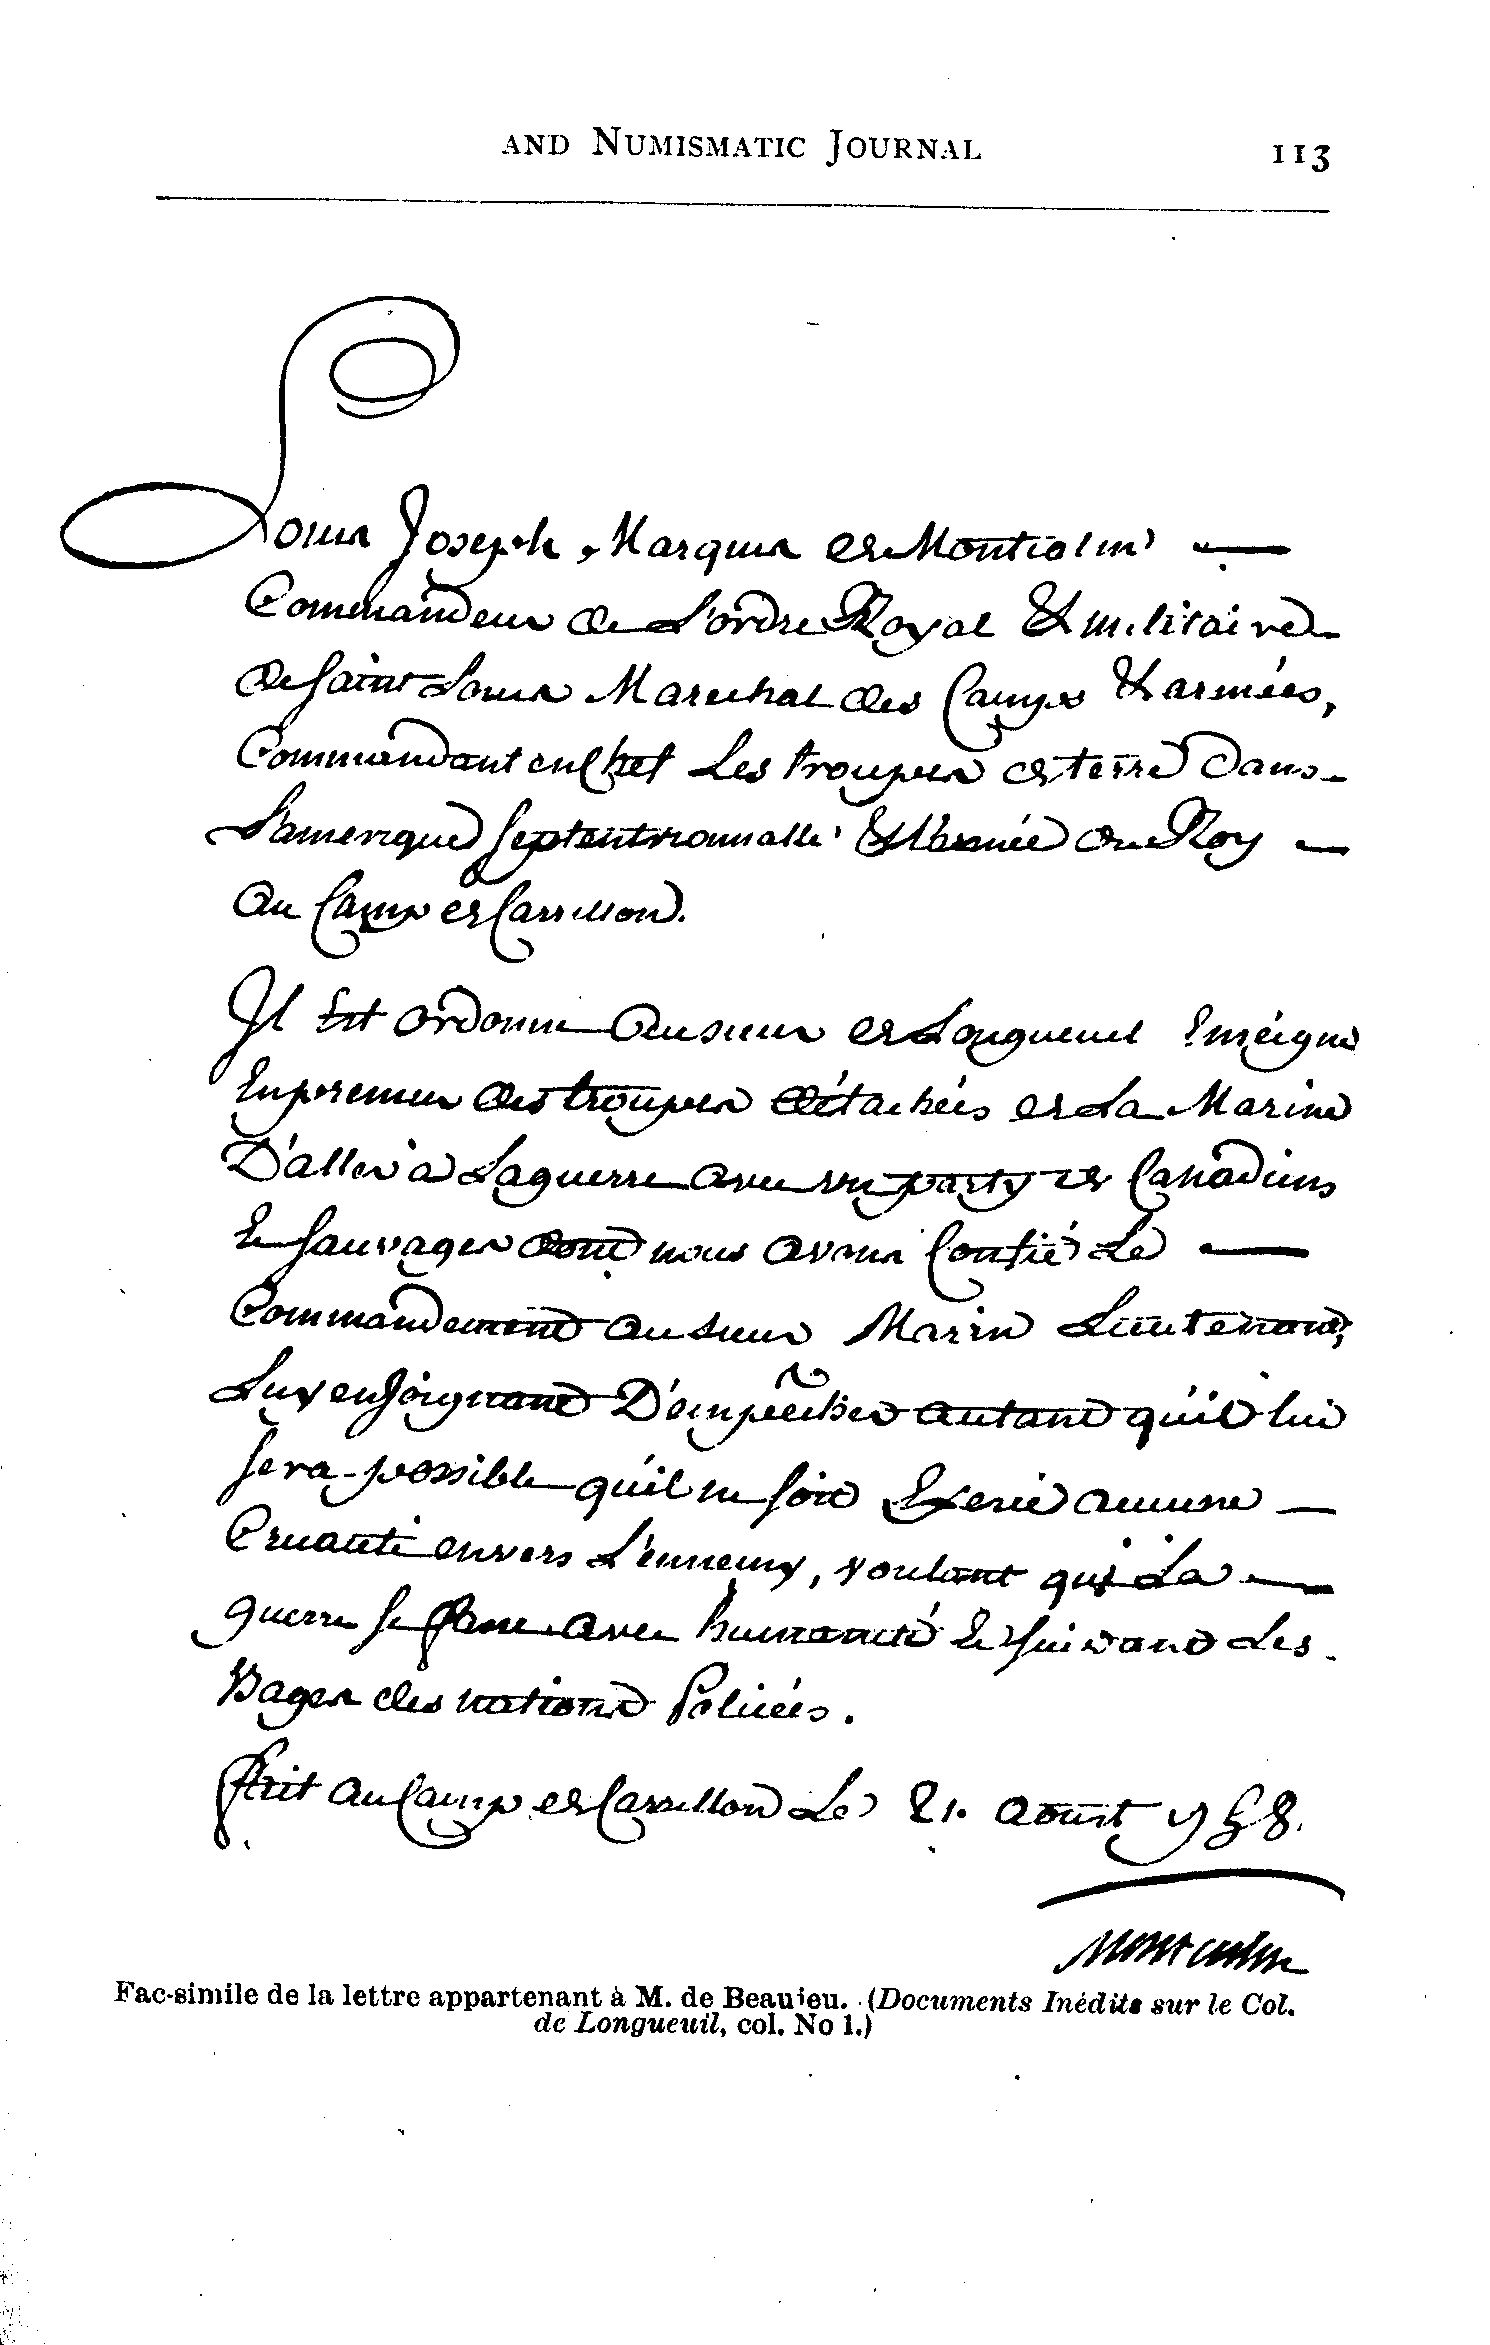 AND NUMISMATIC JOURNAL 113
Louis Joseph, Marquis de Montcalm
Commandeur de L'ordre Royal & militaire
de saint Louis Marechal des Camps & armées,
Commandant en chef Les troupes de terre Dans
L'amerique septentrionnalle & L'armée du Roy
Au Camp de Carrillon.
Il Est ordonné Au sieur de Longueuil Enseigne
En premier des troupes détachées de La Marine
D'aller à La guerre avec un party de Canadiens
Et sauvages dont nous avons Confié Le
Commandement au sieur Marin Lieutenant,
Luy enjoignant D'empêcher autant qu'il lui
sera possible qu'il ne soit Exercé aucune
Cruauté envers L'ennemy, voulant que La
guerre se fasse avec humanité Et suivant Les
Usages des nations Policées.
Fait au Camp de Carrillon Le 21. Aoust 1758.
Montcalm
Fac-simile de la lettre appartenant à M. de Beaujeu. (Documents Inédits sur le Col.
de Longueuil, col. No 1.)